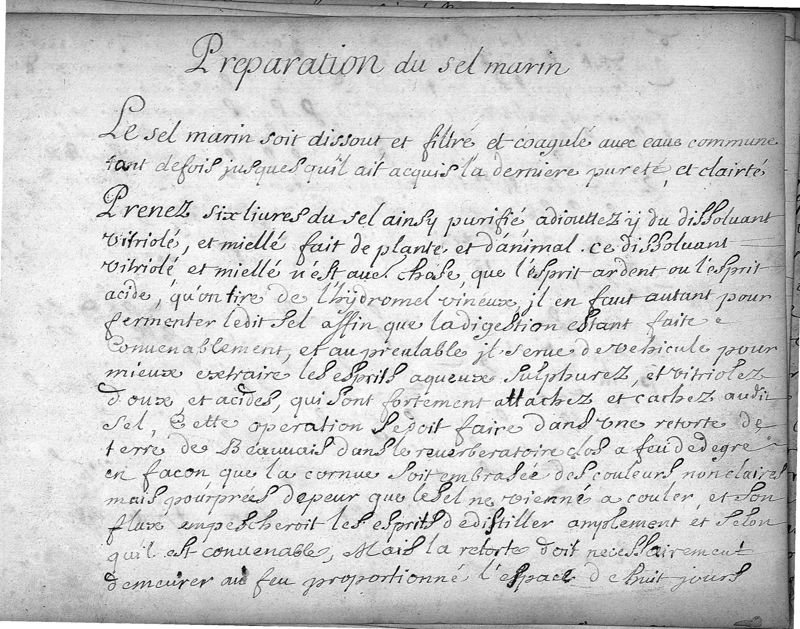 Preparation du sel marin
Le sel marin soit dissout et filtré et coagulé avec eaue commune
tant defois jusques quil ait acquis la derniere pureté, et clairté
Prenez six livres du sel ainsy purifié adiouttez ÿ du dissoluant
vitriolé, et miellé fait de plante et danimal. ce dissoluant
vitriolé et miellé n'est autre chose que l'esprit ardent ou l'esprit
acide, qu'on tire de l'hÿdromel vineux, jl en faut autant pour
fermenter ledit sel affin que la digestion estant faite
Convenablement, et au prealable jl serve de vehicule pour
mieux extraire les esprits aqueux sulphurez, et vitriolez
doux et acides, qui sont fortement attachez et cachez audit
sel, Cette operation se doit faire dans une retorte de
terre de Beauvais dans le reverberatoire clos a feu de degré
en facon que la cornue soit embrasée des couleurs non claires
mais pourprés de peur que le sel ne vienne a couler, et son
flux empescheroit les esprits de distiller amplement et selon
quil est convenable, Mais la retorte doit necessairement
demeurer au feu proportionné l'espace de huit jours